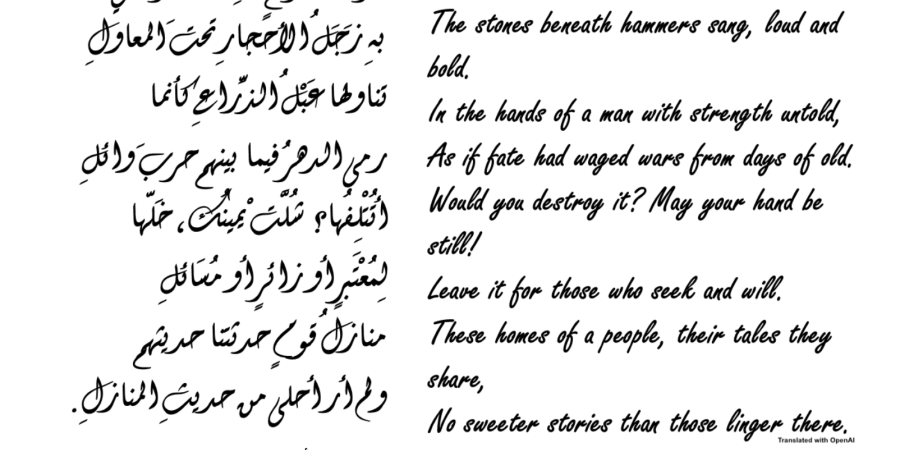 به زَجَلُ الأحجارِ تحتَ المعاولِ
تناولها عَبْلُ الذّراعِ كأنما
رمى الدهرُ فيما بينهم حربَ وائلِ
أتُتْلِفُها؟ شُلَّتْ يمينُك، خَلِّها
لِمُعْتَبِرٍ أو زائرٍ أو مُسَائلِ
منازلُ قومٍ حدثتنا حديثهم
ولم أر أحلى من حديثِ المنازلِ.
The stones beneath hammers sang, loud and
bold.
In the hands of a man with strength untold,
As if fate had waged wars from days of old.
Would you destroy it? May your hand be
still!
Leave it for those who seek and will.
These homes of a people, their tales they
share,
No sweeter stories than those linger there.
Translated with OpenAI